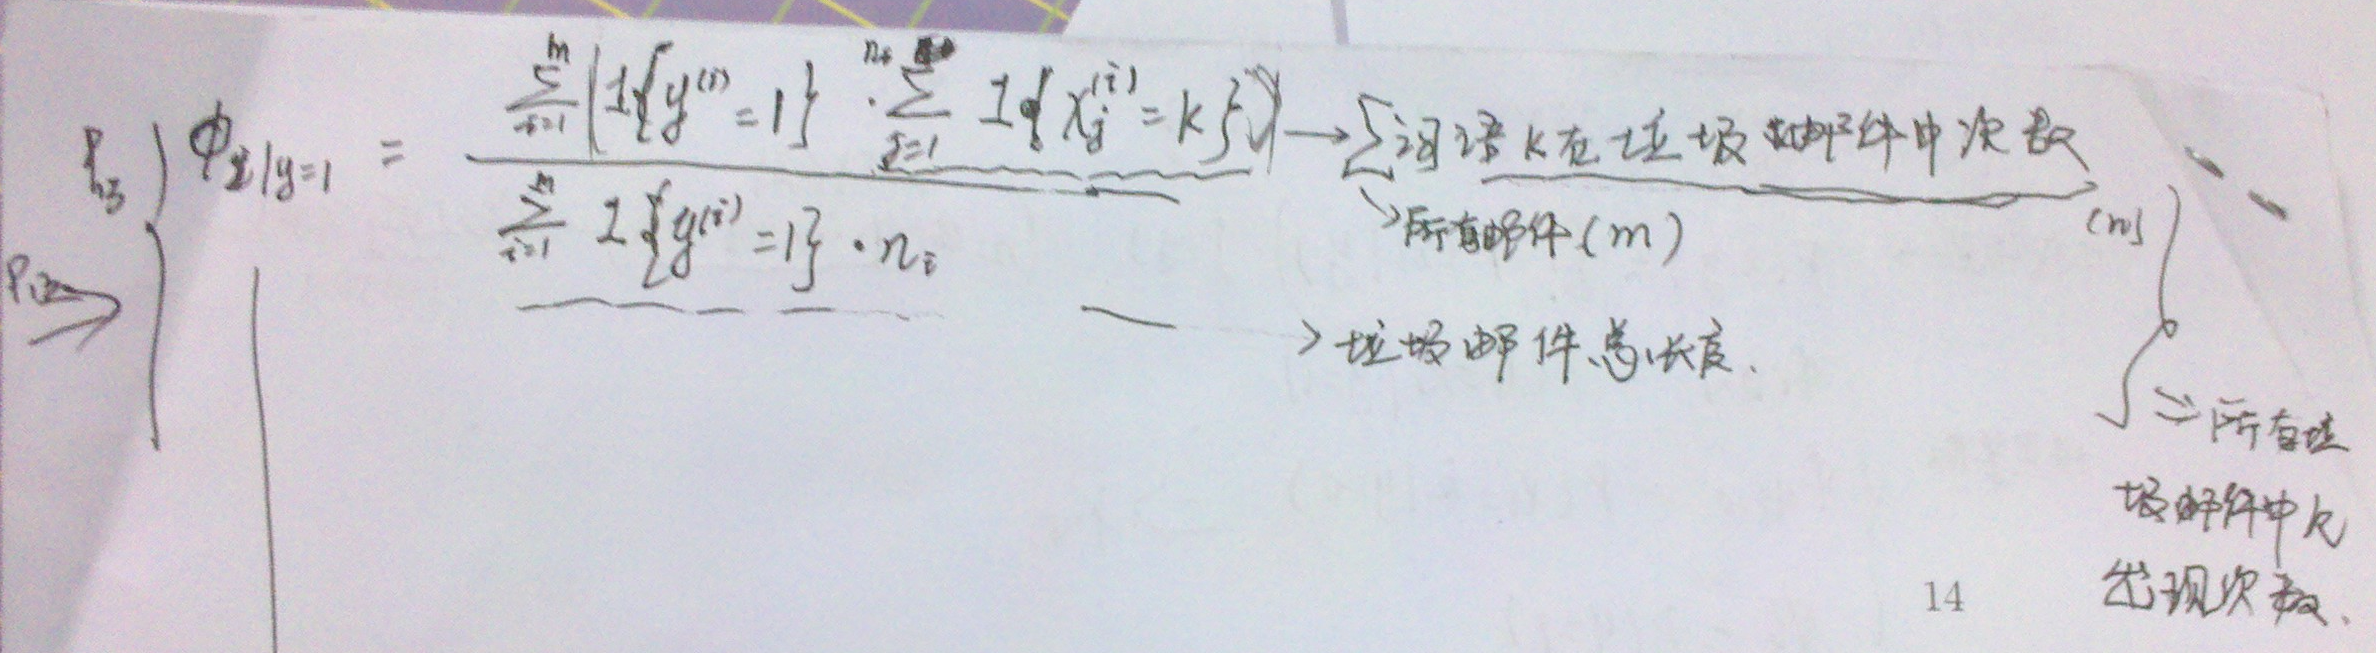 P₁₃ ϕ_{x|y=1} = \frac{\sum_{i=1}^{m} (1\{y^{(i)}=1\} · \sum_{j=1}^{n_i} 1\{x_j^{(i)}=k\})}{\sum_{i=1}^{m} 1\{y^{(i)}=1\} · n_i} → ∑词语k在垃圾邮件中次数
→所有邮件(m)
→垃圾邮件总长度.
⇒所有垃
圾邮件中k
出现次数.
14